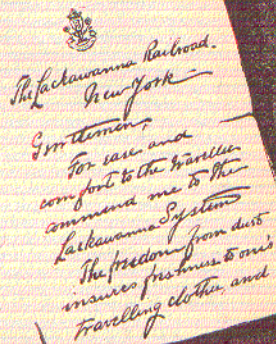 The Lackawanna Railroad.
New York
Gentlemen,
For ease and
comfort to the traveller
commend me to the
Lackawanna System
The freedom from dust
insures freshness to one's
travelling clothes and